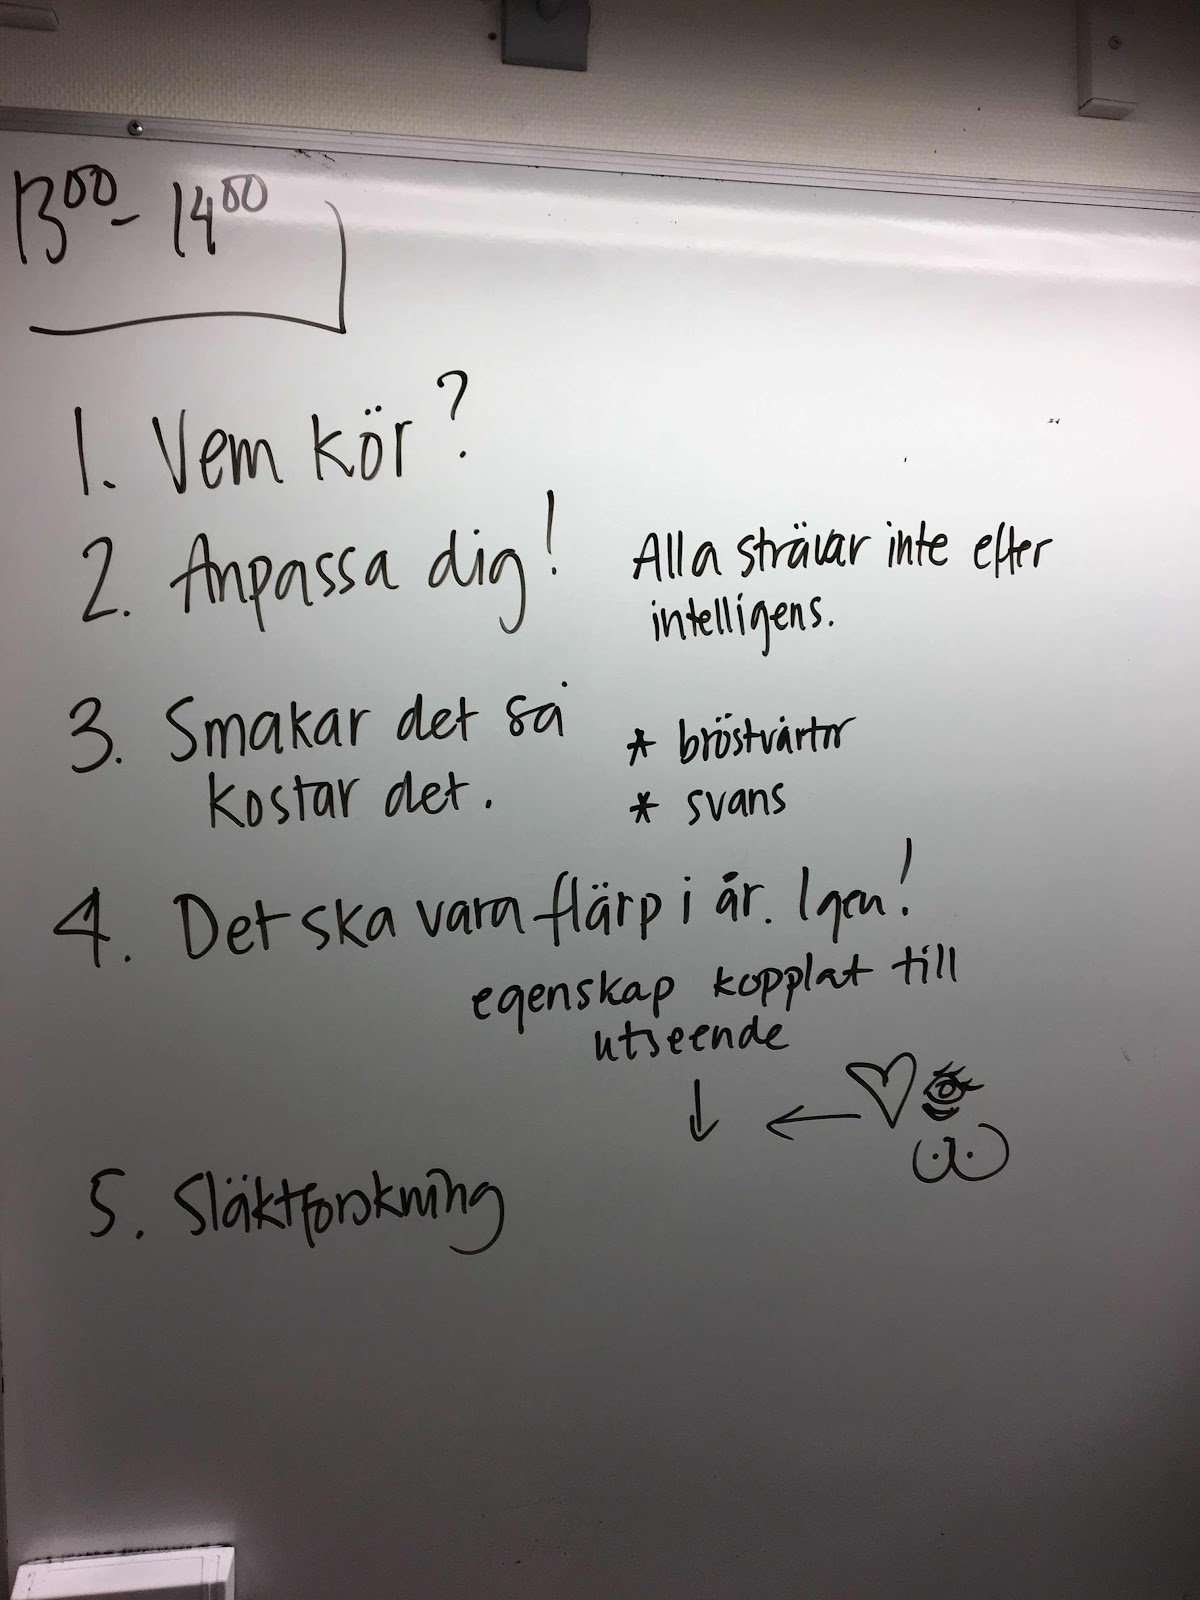 13⁰⁰ - 14⁰⁰
1. Vem kör?
2. Anpassa dig!
Alla strävar inte efter
intelligens.
3. Smakar det så
kostar det.
* bröstvårtor
* svans
4. Det ska vara flärp i år. Igen!
egenskap kopplat till
utseende
↓ ← ♡
5. Släktforskning